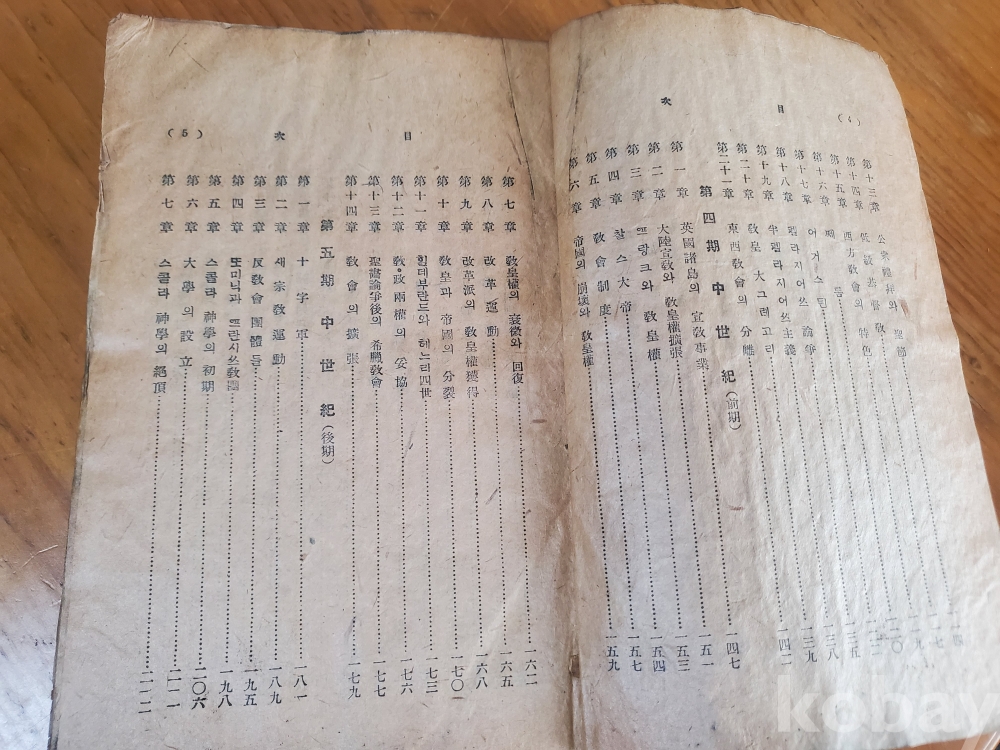 (4) 目 次
第十三章 公衆禮拜의 聖節
第十四章 低級基督教
第十五章 西方教會의 特色
第十六章 쩨롬
第十七章 어거스틴
第十八章 펠라지어쓰 論爭
第十九章 半펠라지어쓰主義 一三八
第二十章 教皇 大그레고리 一三九
第二十一章 東西教會의 分離 一四二
第四期 中世紀 (前期)
第一章 英國諸島의 宣教事業 一四七
第二章 大陸宣教와 教皇權擴張 一五一
第三章 프랑크와 教皇權 一五三
第四章 찰스大帝 一五四
第五章 教會制度 一五七
第六章 帝國의 崩壞와 教皇權 一五九
目 次 (5)
第七章 教皇權의 衰微와 回復 一六二
第八章 改革運動 一六五
第九章 改革派의 教皇權獲得 一六八
第十章 教皇과 帝國의 分裂 一七〇
第十一章 힐데부란드와 헤느리四世 一七三
第十二章 教•政兩權의 妥協 一七六
第十三章 聖畵論爭後의 希臘教會 一七七
第十四章 教會의 擴張 一七九
第五期 中世紀 (後期)
第一章 十字軍 一八一
第二章 새宗教運動 一八九
第三章 反教會團體들 一九五
第四章 또미닉과 프란시쓰教團 一九八
第五章 스콜라 神學의 初期 二〇六
第六章 大學의 設立 二一一
第七章 스콜라 神學의 絕頂 二一二
kobay